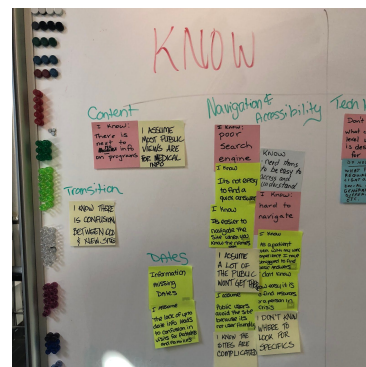 KNOW
Content
I Know:
There is
next to
info
on programs
I ASSUME
MOST PUBLIC
VIEWS ARE
FOR MEDICAL
INFO
Transition
I KNOW THERE
IS CONFUSION
BETWEEN OLD
& NEW SITES
Dates
Information
missing
Dates
I assume
the lack of up to
date info leads
to confusion in
visits for patients
and families
Navigation &
Accessibility
I know:
poor
search
engine
I know
Its not easy
to find a
quick answer
I know
Its easier to
navigate the
site when you
know the names
I ASSUME
A LOT
OF THE PUBLIC
WON'T GET THE
I assume
Public users
avoid the site
because its
not user friendly
I KNOW THE
SITES ARE
COMPLICATED
KNOW
need items
to be easy to
access and
understand
I Know:
hard to
navigate
I know
as a patient
I
struggled to find
don't know
how easy it is
to find resources
as a person in
crisis
I DON'T KNOW
WHERE TO
LOOK FOR
SPECIFICS
Tech
Don't
what
level
is
for